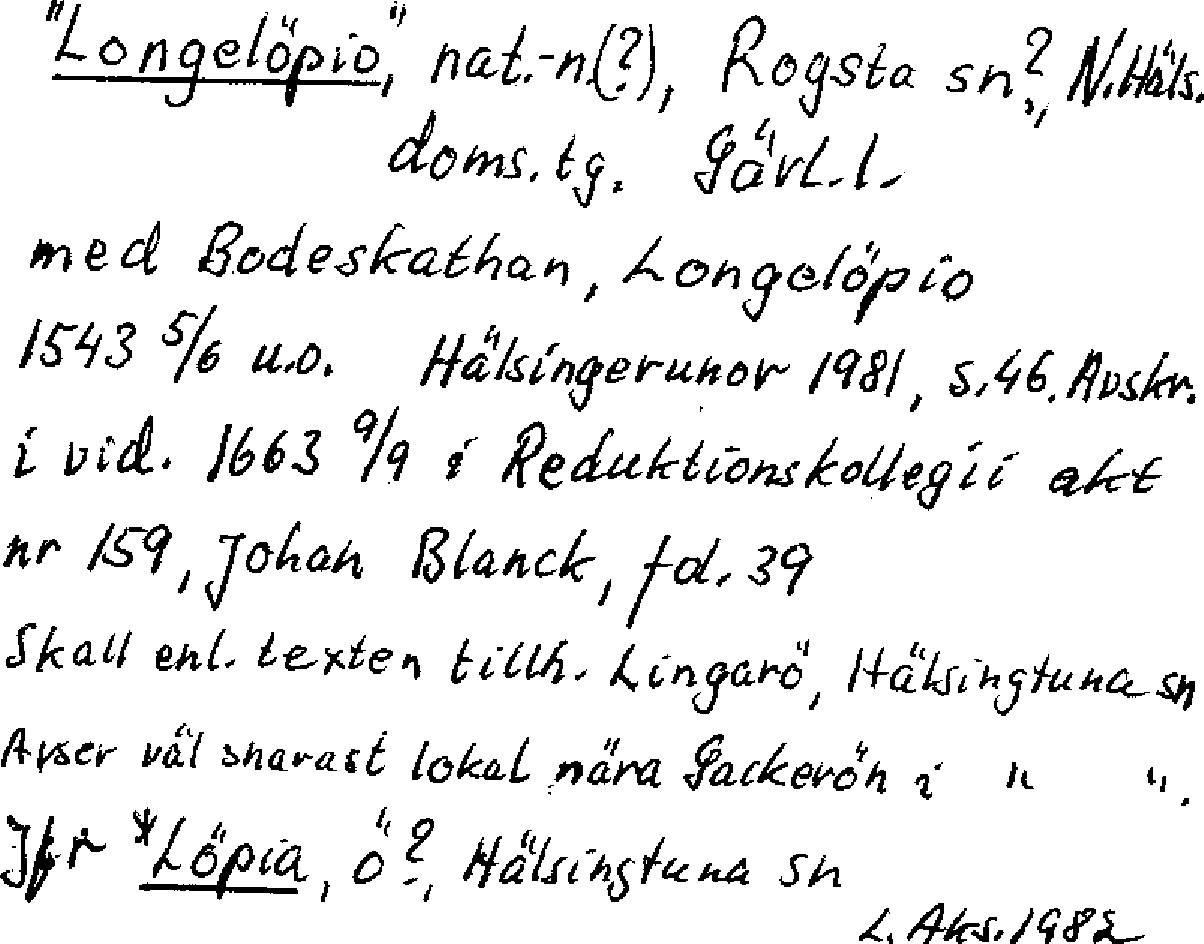 "Longelöpio," nat.-n.(?), Rogsta sn?, N.Häls.
doms.tg. Gävl.l.
med Bodeskathan, Longelöpio
1543 5/6 u.o. Hälsingerunor 1981, s.46. Avskr.
i vid. 1663 9/9 i Reduktionskollegii akt
nr 159, Johan Blanck, fol. 39
Skall enl. texten tillh. Lingarö, Hälsingtuna sn
Avser väl snarast lokal nära Gackerön i " ".
Jfr *Löpia, ö?, Hälsingtuna sn
L. Aks. 1982